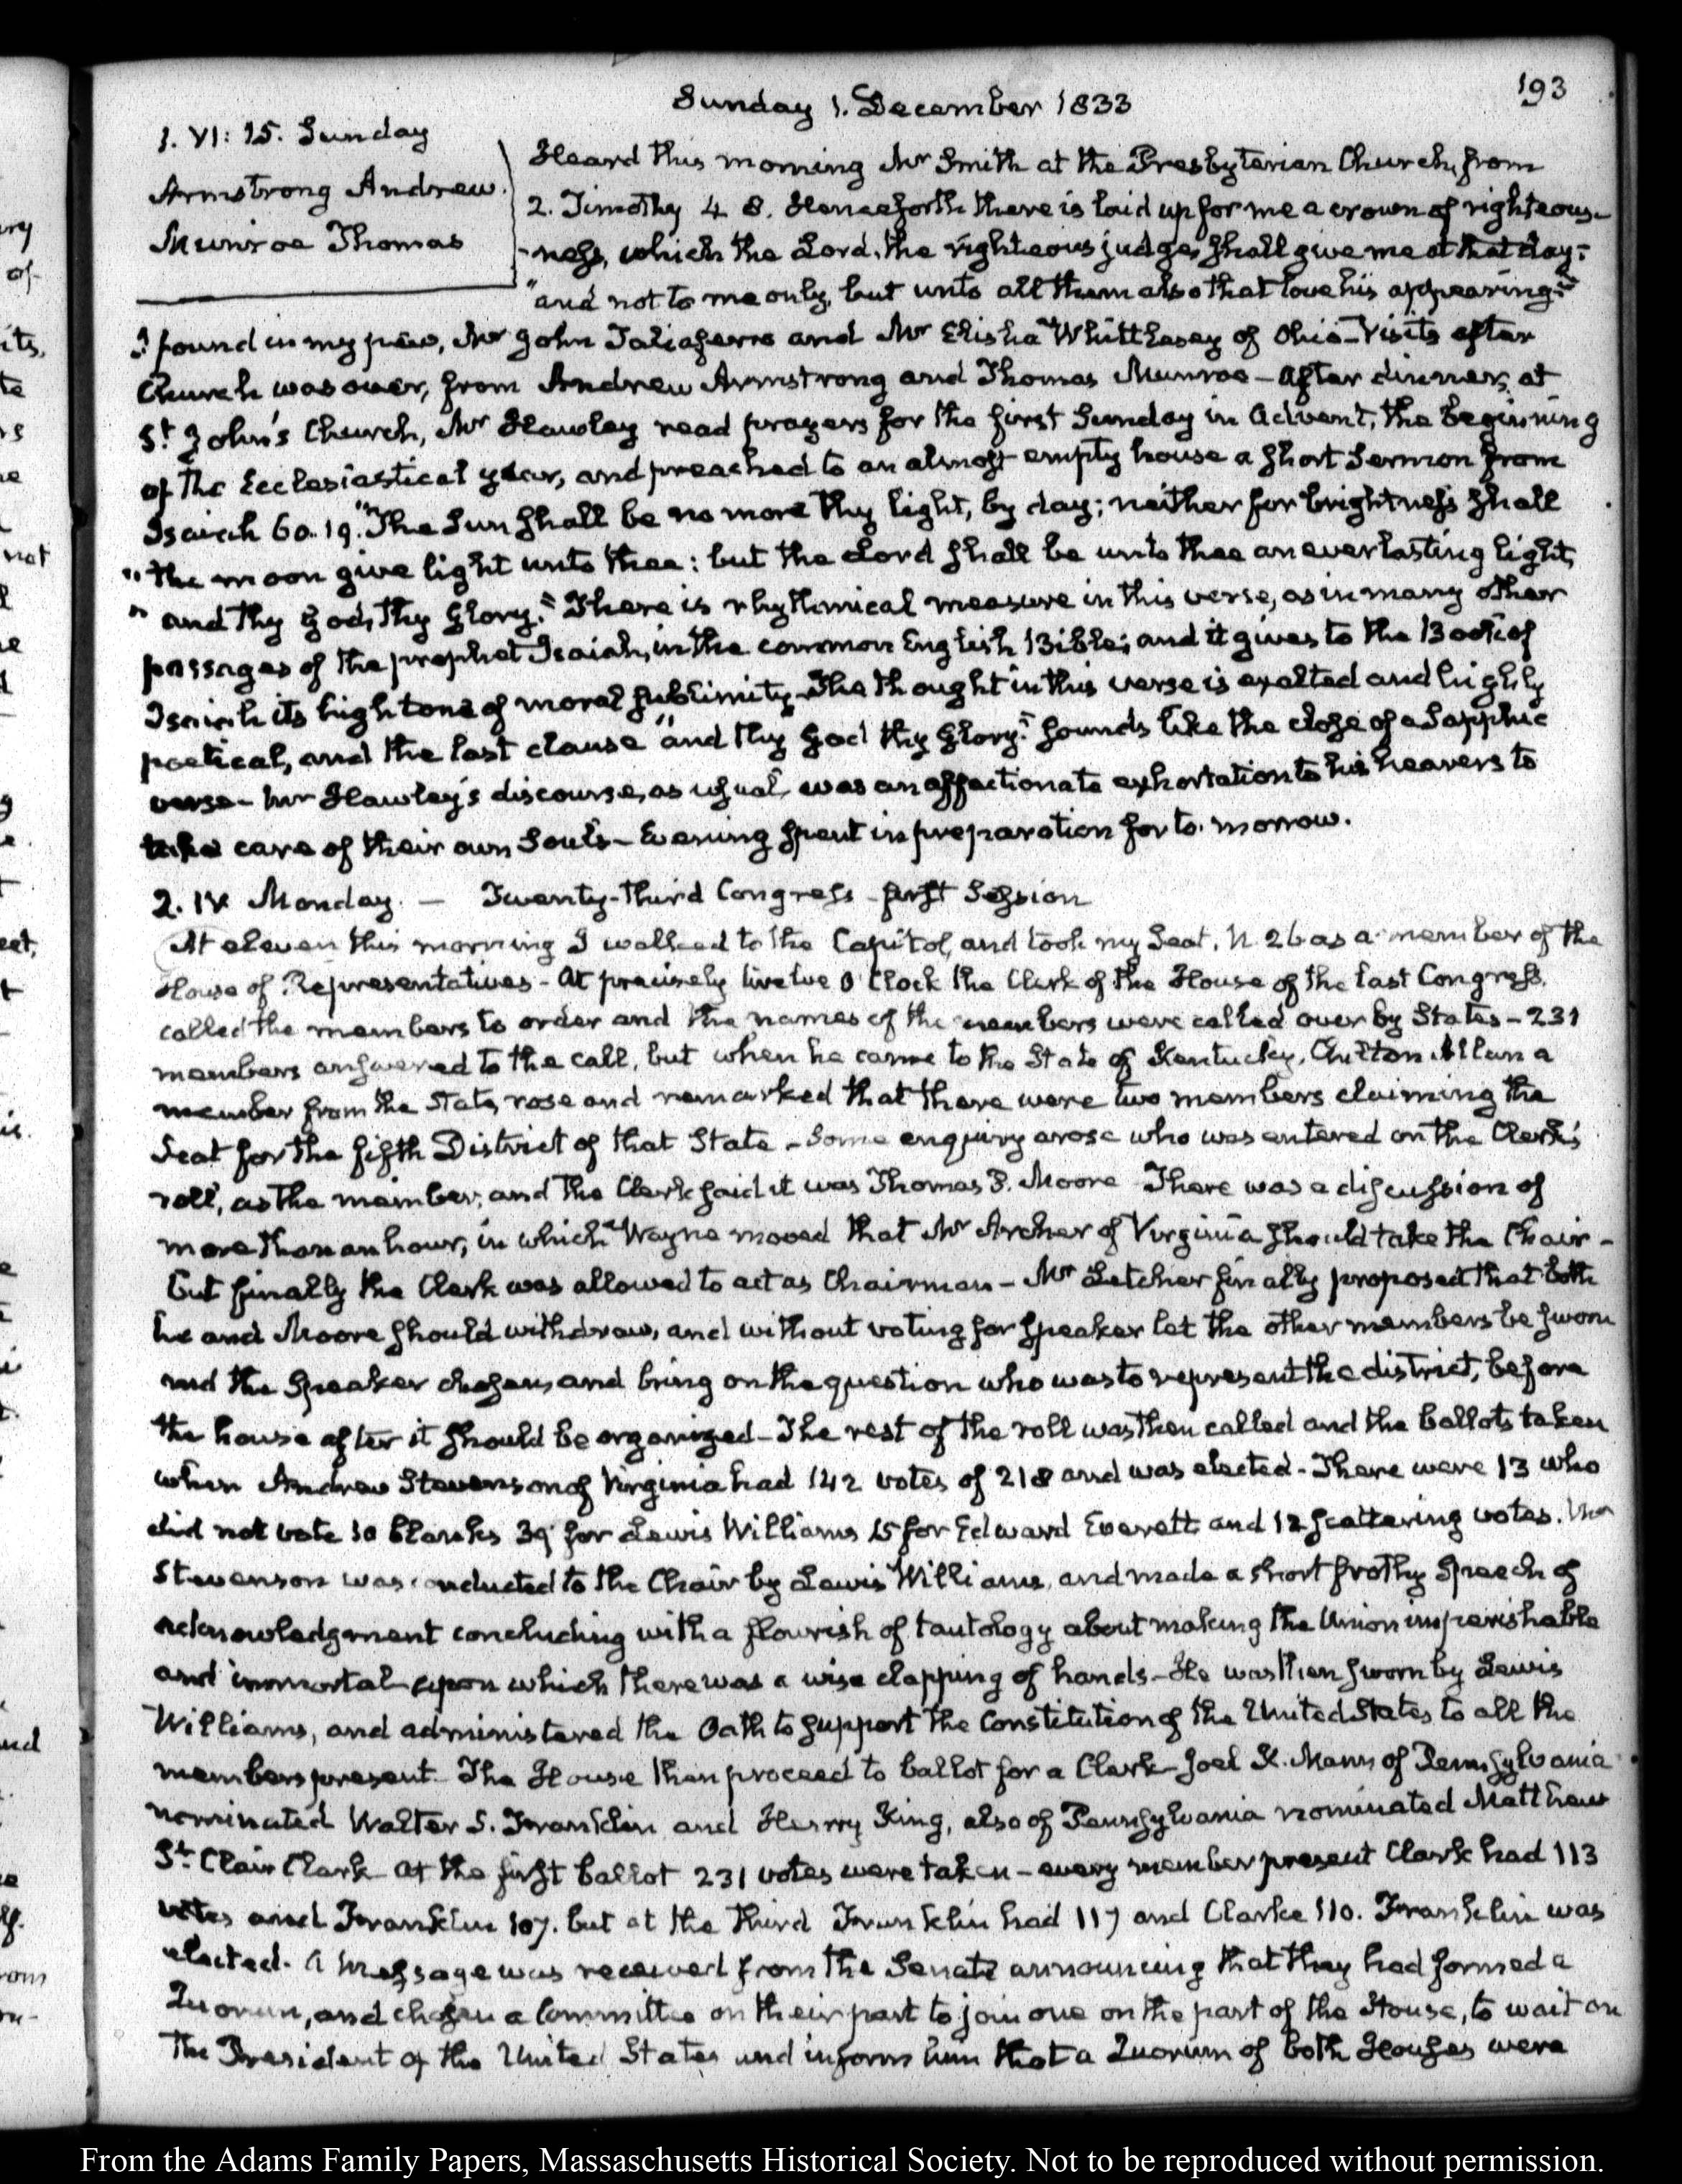 193
Sunday 1. December 1833
1. VI: 15. Sunday
Armstrong Andrew.
Munroe Thomas
Heard this morning Mr Smith at the Presbyterian Church, from
2. Timothy 4 8. Henceforth there is laid up for me a crown of righteous-
-ness, which the Lord, the righteous judge, shall give me at that day:
"and not to me only, but unto all them also that love his appearing."
I found in my pew, Mr John Taliaferro and Mr Elisha Whittlesey of Ohio–Visits after
Church was over, from Andrew Armstrong and Thomas Munroe – After dinner, at
St John's Church, Mr Hawley read prayers for the first Sunday in Advent, the beginning
of the Ecclesiastical year, and preached to an almost empty house a short Sermon from
Isaiah 60. 19. "The Sun shall be no more thy light, by day; neither for brightness shall
"the moon give light unto thee: but the Lord shall be unto thee an everlasting light,
"and thy God, thy Glory." There is rhythmical measure in this verse, as in many other
passages of the prophet Isaiah, in the common English Bible; and it gives to the Book of
Isaiah its high tone of moral sublimity–The thought in this verse is exalted and highly
poetical, and the last clause "and thy God thy Glory." sounds like the close of a Sapphic
verse – Mr Hawley's discourse, as usual, was an affectionate exhortation to his hearers to
take care of their own Souls – Evening spent in preparation for to-morrow.
2. IV Monday. – Twenty-third Congress – first Session
At eleven this morning I walked to the Capitol, and took my Seat, N. 26 as a member of the
House of Representatives – At precisely twelve O'Clock the Clerk of the House of the last Congress,
called the members to order and the names of the members were called over by States – 231
members answered to the call, but when he came to the State of Kentucky, Chilton Allan a
member from the State, rose and remarked that there were two members claiming the
Seat for the fifth District of that State – Some enquiry arose who was entered on the Clerk's
roll, as the member, and the Clerk said it was Thomas P. Moore – There was a discussion of
more than an hour, in which Wayne moved that Mr Archer of Virginia should take the Chair –
but finally the Clerk was allowed to act as Chairman – Mr Letcher finally proposed that both
he and Moore should withdraw, and without voting for Speaker let the other members be sworn
and the Speaker chosen, and bring on the question who was to represent the district, before
the house after it should be organized – The rest of the roll was then called and the ballots taken
when Andrew Stevenson of Virginia had 142 votes of 218 and was elected – There were 13 who
did not vote 10 blanks 39 for Lewis Williams 15 for Edward Everett and 12 scattering votes. Mr
Stevenson was conducted to the Chair by Lewis Williams, and made a short frothy Speech of
acknowledgment concluding with a flourish of tautology about making the Union imperishable
and immortal upon which there was a wise clapping of hands – He was then sworn by Lewis
Williams, and administered the Oath to support the Constitution of the United States to all the
members present – The House then proceed to ballot for a Clerk – Joel K. Mann of Pennsylvania
nominated Walter S. Franklin and Henry King, also of Pennsylvania nominated Matthew
St. Clair Clark – At the first ballot 231 votes were taken – every member present Clark had 113
votes and Franklin 107. but at the third Franklin had 117 and Clarke 110. Franklin was
elected. A Message was received from the Senate announcing that they had formed a
Quorum, and chosen a Committee on their part to join one on the part of the House, to wait on
the President of the United States and inform him that a Quorum of both Houses were
From the Adams Family Papers, Massachusetts Historical Society. Not to be reproduced without permission.